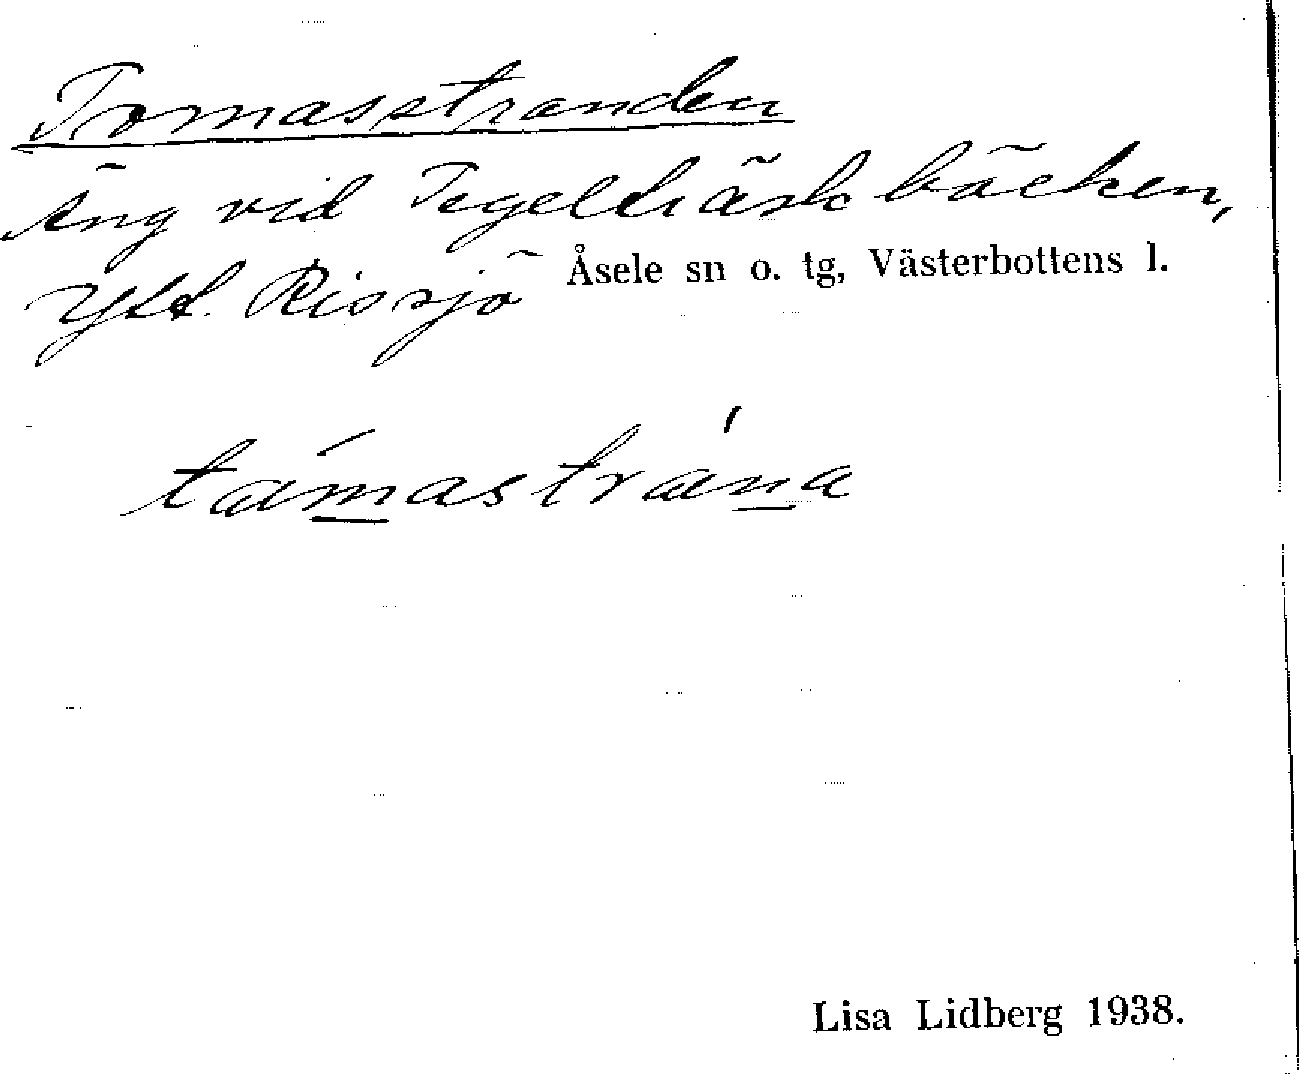 Tomasstranden
Äng vid Tegelträsk bäcken,
Ytt. Rissjö Åsele sn o. tg, Västerbottens l.
támastrána
Lisa Lidberg 1938.